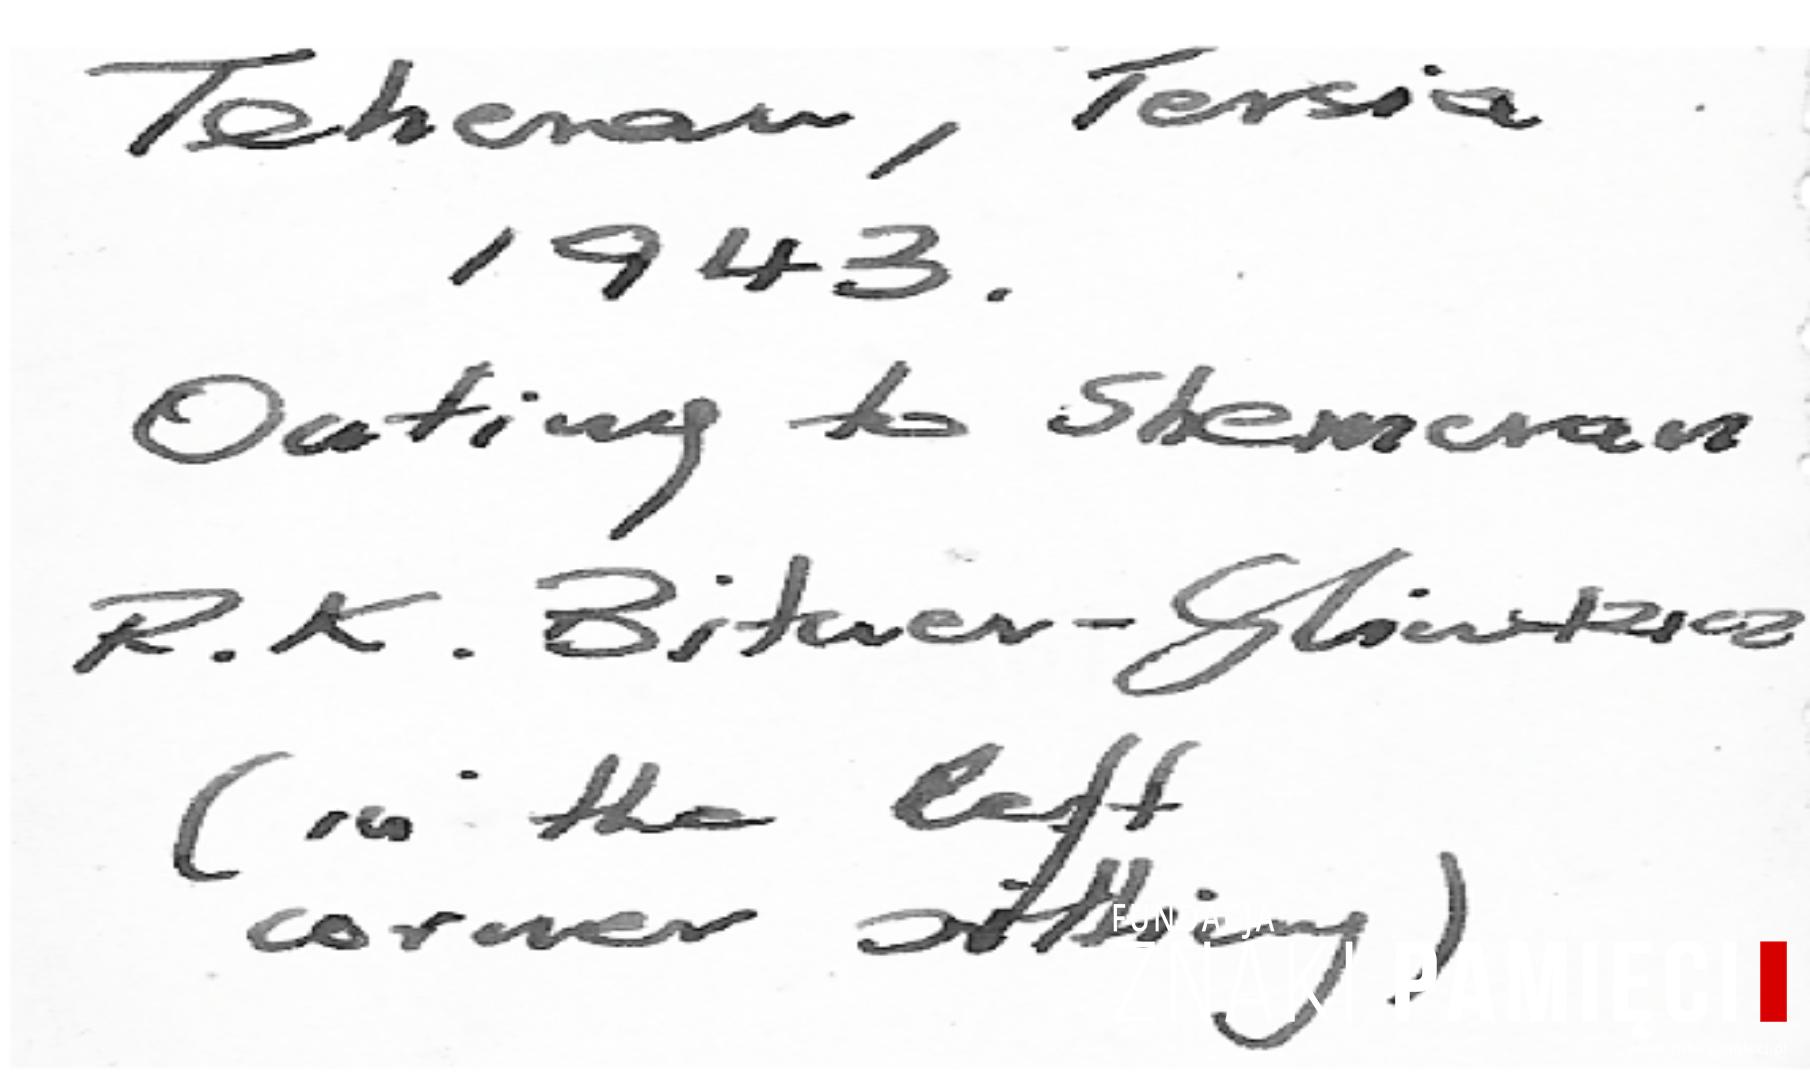 Teheran, Persia
1943.
Outing to Shemeran
R.K. Bitner-Glindzicz
(in the left
corner sitting)
FUNDACJA
ZNAKI PAMIĘCI